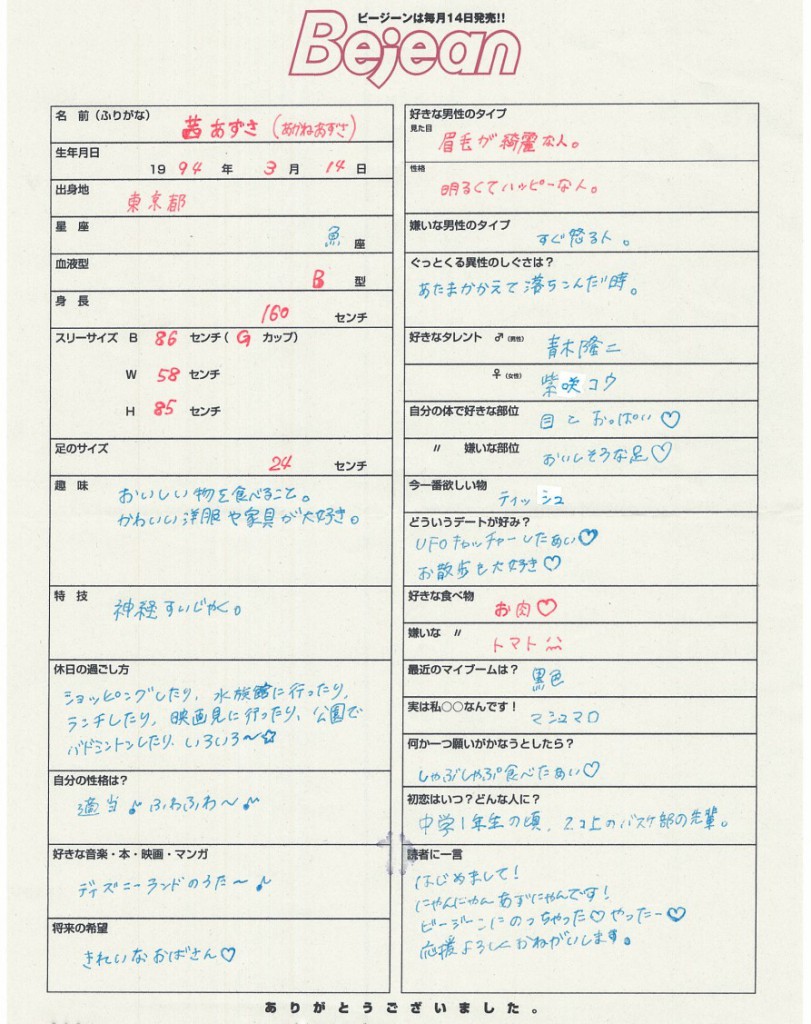 ビージーンは毎月14日発売!!
Bejean
名　前（ふりがな）
茜あずさ（あかねあずさ）
生年月日
1994年 3月 14日
出身地
東京都
星　座
魚座
血液型
B型
身　長
160センチ
スリーサイズ B 86センチ（Gカップ）
W 58センチ
H 85センチ
足のサイズ
24センチ
趣　味
おいしい物を食べること。
かわいい洋服や家具が大好き。
特　技
神経すいじゃく。
休日の過ごし方
ショッピングしたり、水族館に行ったり、
ランチしたり、映画見に行ったり、公園で
バドミントンしたり、いろいろ〜☆
自分の性格は？
適当♪ふわふわ〜♪
好きな音楽・本・映画・マンガ
ディズニーランドのうた〜♪
将来の希望
きれいなおばさん♡
好きな男性のタイプ
見た目
眉毛が綺麗な人。
性格
明るくてハッピーな人。
嫌いな男性のタイプ
すぐ怒る人。
ぐっとくる異性のしぐさは？
あたまかかえて落ちこんだ時。
好きなタレント ♂（男性）
青木隆二
♀（女性）
紫咲コウ
自分の体で好きな部位
目とおっぱい♡
〃　嫌いな部位
おいしそうな足♡
今一番欲しい物
ティッシュ
どういうデートが好み？
UFOキャッチャーしたあい♡
お散歩も大好き♡
好きな食べ物
お肉♡
嫌いな 〃
トマト
最近のマイブームは？
黒色
実は私○○なんです！
マシュマロ
何か一つ願いがかなうとしたら？
しゃぶしゃぶ食べたあい♡
初恋はいつ？どんな人に？
中学1年生の頃、2コ上のバスケ部の先輩。
読者に一言
はじめまして！
にゃんにゃんあずにゃんです！
ビージーンにのっちゃった♡やったー♡
応援よろしくおねがいします。
ありがとうございました。